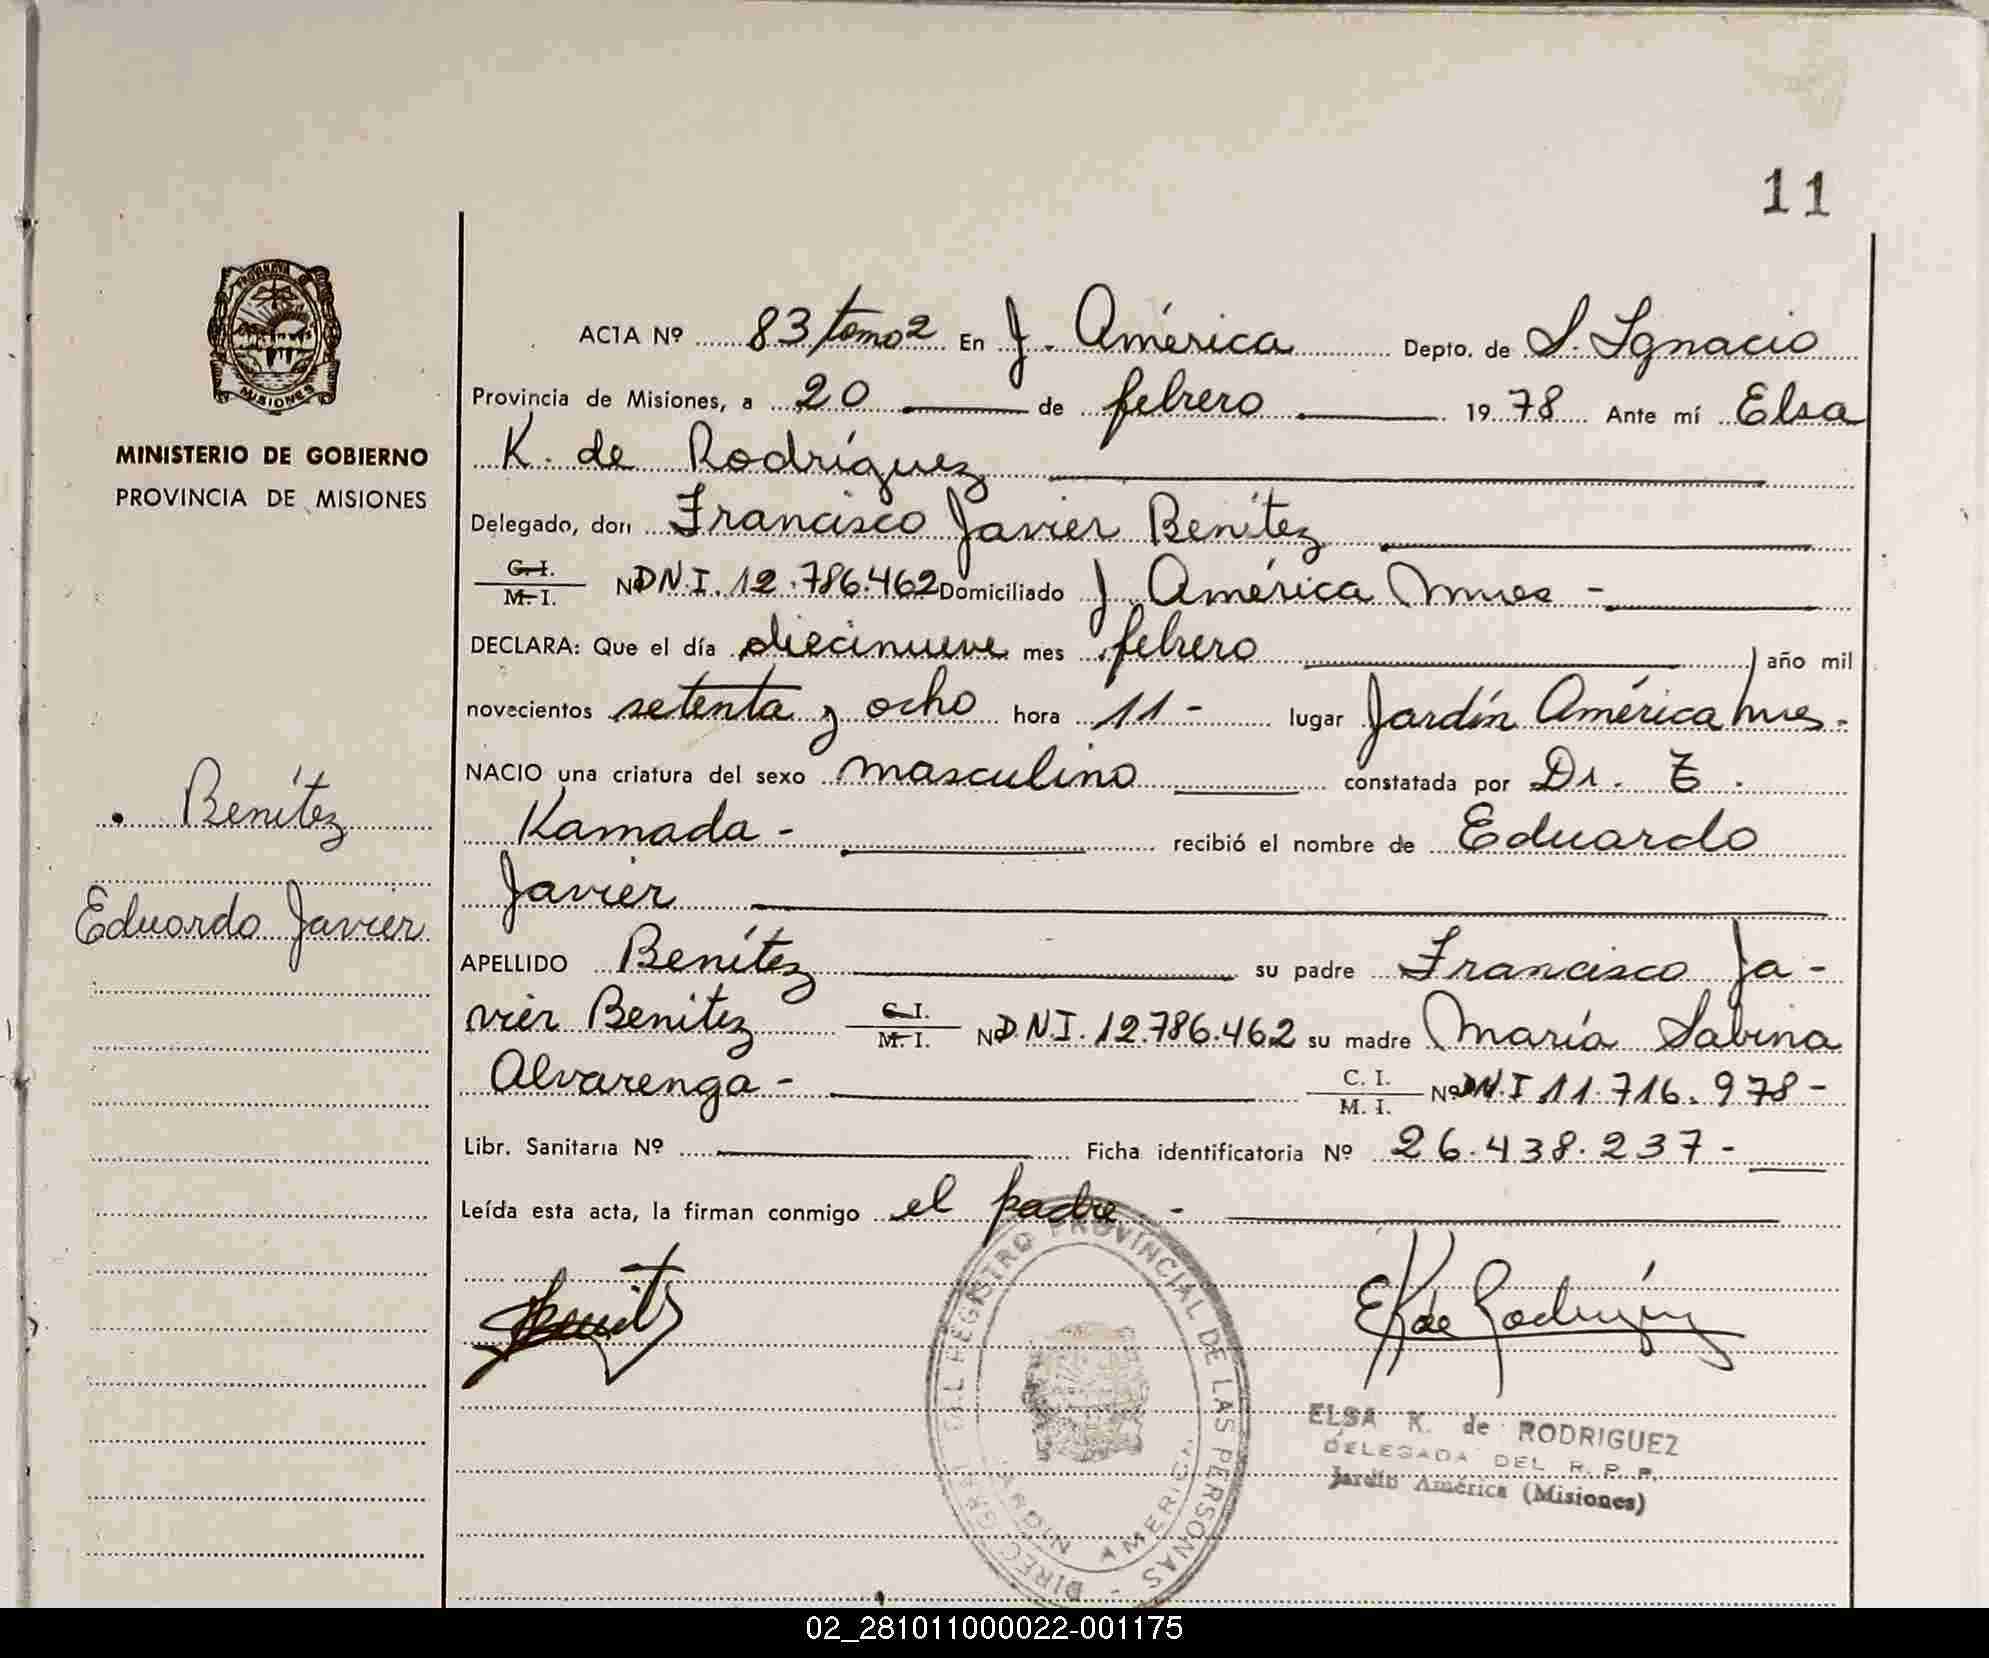 11
PROVINCIA DE
MISIONES
MINISTERIO DE GOBIERNO
PROVINCIA DE MISIONES
Benítez
Eduardo Javier
ACTA Nº 83 tomo 2 En J. América Depto. de S. Ignacio
Provincia de Misiones, a 20 de febrero 1978 Ante mí Elsa
K. de Rodríguez
Delegado, don Francisco Javier Benítez
C. I.
M. I. Nº D.N.I. 12.786.462 Domiciliado J. América Mnes -
DECLARA: Que el día diecinueve mes febrero año mil
novecientos setenta y ocho hora 11 - lugar Jardín América Mnes.
NACIO una criatura del sexo masculino constatada por Dr. Z.
Kamada - recibió el nombre de Eduardo
Javier
APELLIDO Benítez su padre Francisco Ja-
vier Benítez C. I.
M. I. Nº D.N.I. 12.786.462 su madre María Sabina
Alvarenga - C. I.
M. I. Nº D.N.I 11.716.978 -
Libr. Sanitaria Nº Ficha identificatoria Nº 26.438.237 -
Leída esta acta, la firman conmigo el padre -
Benitz
EK de Rodríguez
DIREC. GRAL. DEL REGISTRO PROVINCIAL DE LAS PERSONAS -
JARDIN AMERICA
ELSA K. de RODRIGUEZ
DELEGADA DEL R. P. P.
Jardín América (Misiones)
02_281011000022-001175